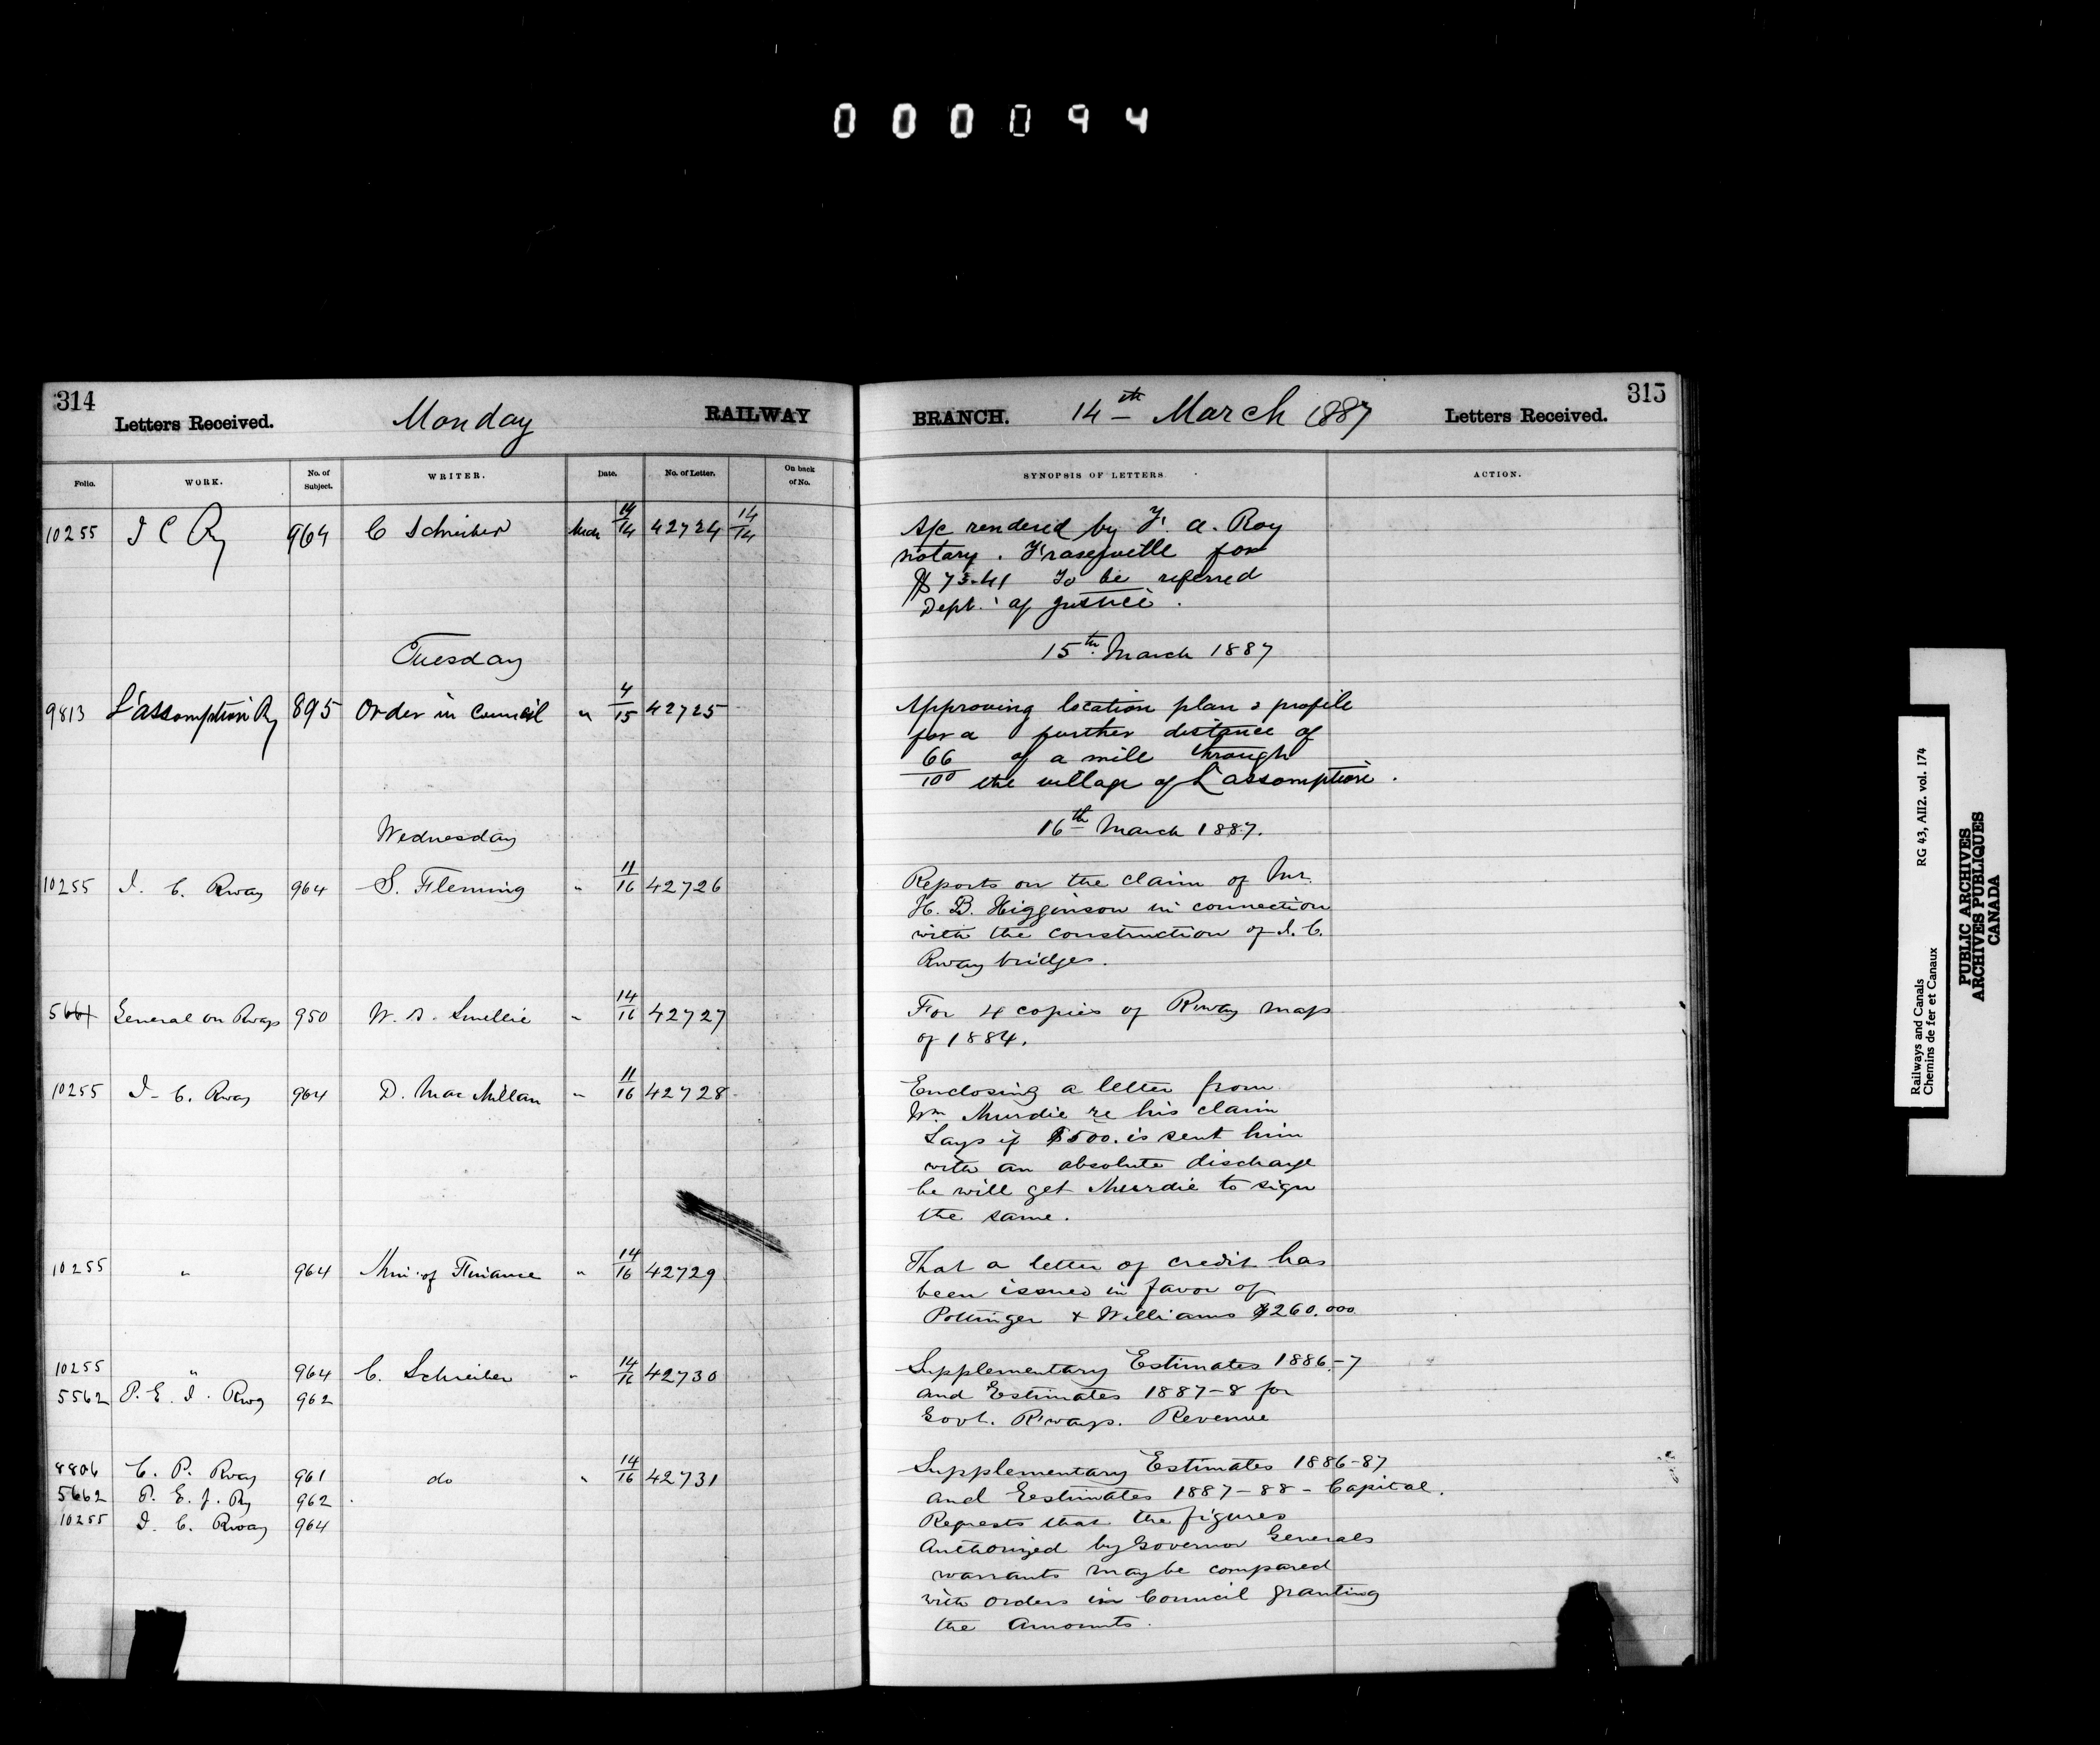 000094
314
Letters Received.
Monday
RAILWAY
Folio.
WORK.
No. of Subject.
WRITER.
Date.
No. of Letter.
On back of No.
10255 I C Ry 964 C Schreiber Mch 14/14 42724 14/14
Tuesday
9813 L'assomption Ry 895 Order in Council " 4/15 42725
Wednesday
10255 I. C. Rway 964 S. Fleming " 11/16 42726
General on Rways 950 W. B. Smellie " 14/16 42727
10255 I. C. Rway 964 D. MacMillan " 11/16 42728
10255 " 964 Min. of Finance " 14/16 42729
10255 " 964 C. Schreiber " 14/16 42730
5562 P. E. I. Rwy 962
8806 C. P. Rway 961 do " 14/16 42731
5662 P. E. I. Ry 962
10255 I. C. Rway 964
315
BRANCH.
14th March 1887
Letters Received.
SYNOPSIS OF LETTERS
ACTION.
A/c rendered by F. A. Roy
notary. Fraserville for
$73.41 To be referred
Dept. of Justice.
15th March 1887
Approving location plan & profile
for a further distance of
66/100 of a mile through
the village of L'assomption.
16th March 1887.
Reports on the claim of Mr.
H. B. Higginson in connection
with the construction of I. C.
Rway bridges.
For 4 copies of Rway map
of 1884.
Enclosing a letter from
Wm. Murdie re his claim
Says if $500. is sent him
with an absolute discharge
he will get Murdie to sign
the same.
That a letter of credit has
been issued in favor of
Pottinger & Williams $260.000
Supplementary Estimates 1886-7
and Estimates 1887-8 for
Govt. Rways. Revenue
Supplementary Estimates 1886-87
and Eestimates 1887-88 - Capital.
Requests that the figures
Authorized by Governor Generals
warrants may be compared
with Orders in Council granting
the Amounts.
Railways and Canals
Chemins de fer et Canaux
RG 43, AII2. vol. 174
PUBLIC ARCHIVES
ARCHIVES PUBLIQUES
CANADA